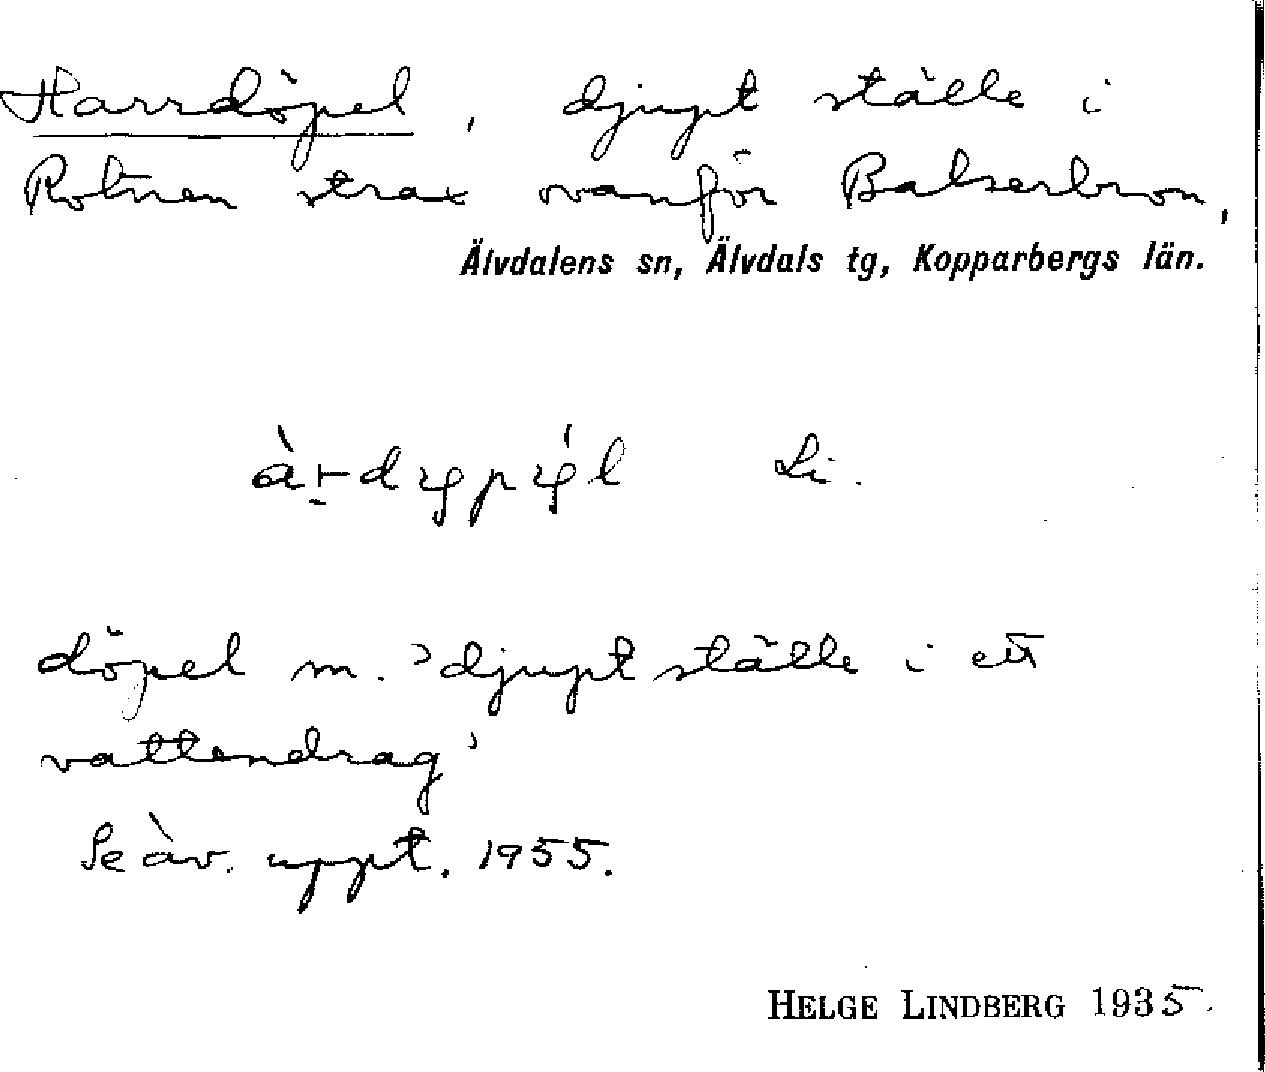 Harrdöpel, djupt ställe i
Rotnen strax ovanför Balserbron,
Älvdalens sn, Älvdals tg, Kopparbergs län.
Li.
döpel m. 'djupt ställe i ett
vattendrag'
Se äv. uppt. 1955.
HELGE LINDBERG 1935.